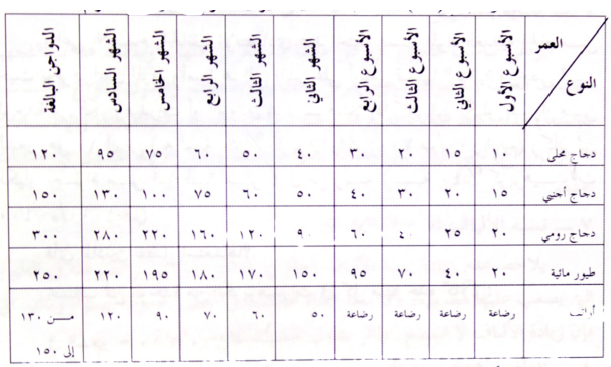 العمر
النوع
الأسبوع الأول
الأسبوع الثاني
الأسبوع الثالث
الأسبوع الرابع
الشهر الثاني
الشهر الثالث
الشهر الرابع
الشهر الخامس
الشهر السادس
الدواجن البالغة
دجاج محلى ١٠ ١٥ ٢٠ ٣٠ ٤٠ ٥٠ ٦٠ ٧٥ ٩٥ ١٢٠
دجاج أجنبي ١٥ ٢٠ ٣٠ ٤٠ ٥٠ ٦٠ ٧٥ ١٠٠ ١٣٠ ١٥٠
دجاج رومي ٢٠ ٢٥ ٦٠ ٩٠ ١٢٠ ١٦٠ ٢٢٠ ٢٨٠ ٣٠٠
طيور مائية ٢٠ ٤٠ ٧٠ ٩٥ ١٥٠ ١٧٠ ١٨٠ ١٩٥ ٢٢٠ ٢٥٠
أرانب رضاعة رضاعة رضاعة رضاعة ٥٠ ٦٠ ٧٠ ٩٠ ١٢٠ مـــن ١٣٠
إلى ١٥٠